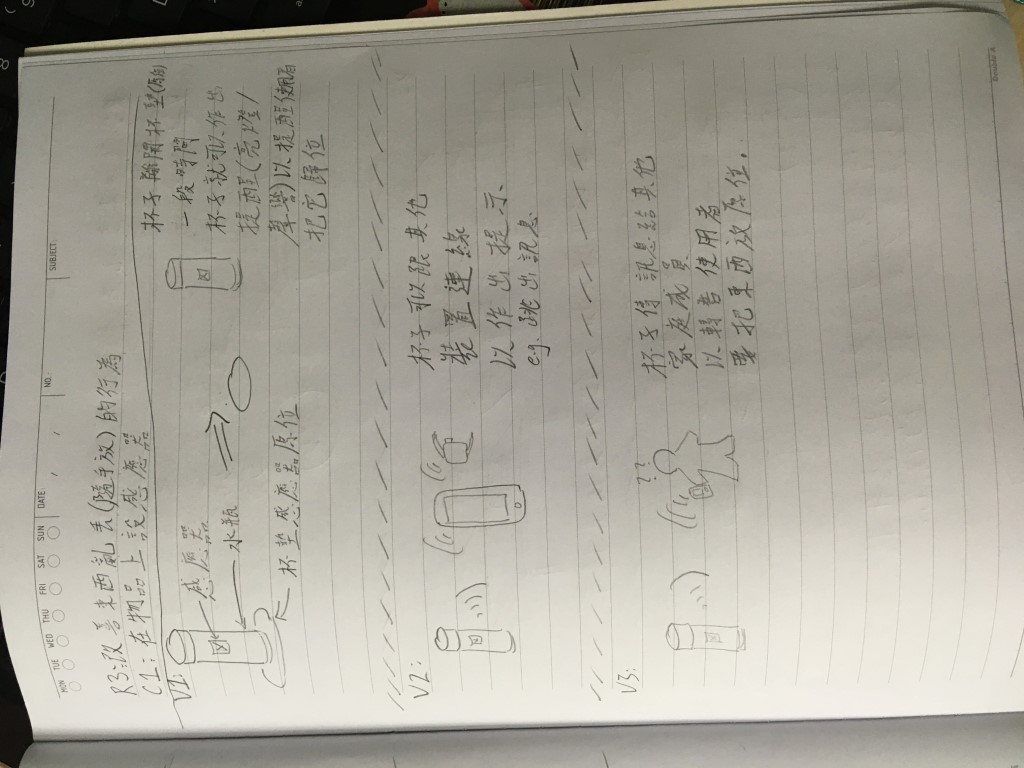 MON TUE WED THU FRI SAT SUN DATE: / / NO.: SUBJECT:
R3:改喜東西亂丟(隨手放)的行為
C1:在物品上設感應器
V1:
感應器
水瓶
杯墊感應器原位
杯子離開杯墊(原位)
一段時間
杯子就可以作出
提醒(亮燈/
聲響)以提醒使用者
把它歸位
V2:
杯子可以跟其他
裝置連線
以作出提示
e.g. 跳出訊息
V3:
??
杯子傳訊息給其他
家庭成員
以轉告使用者
要把東西放原位.
Double A